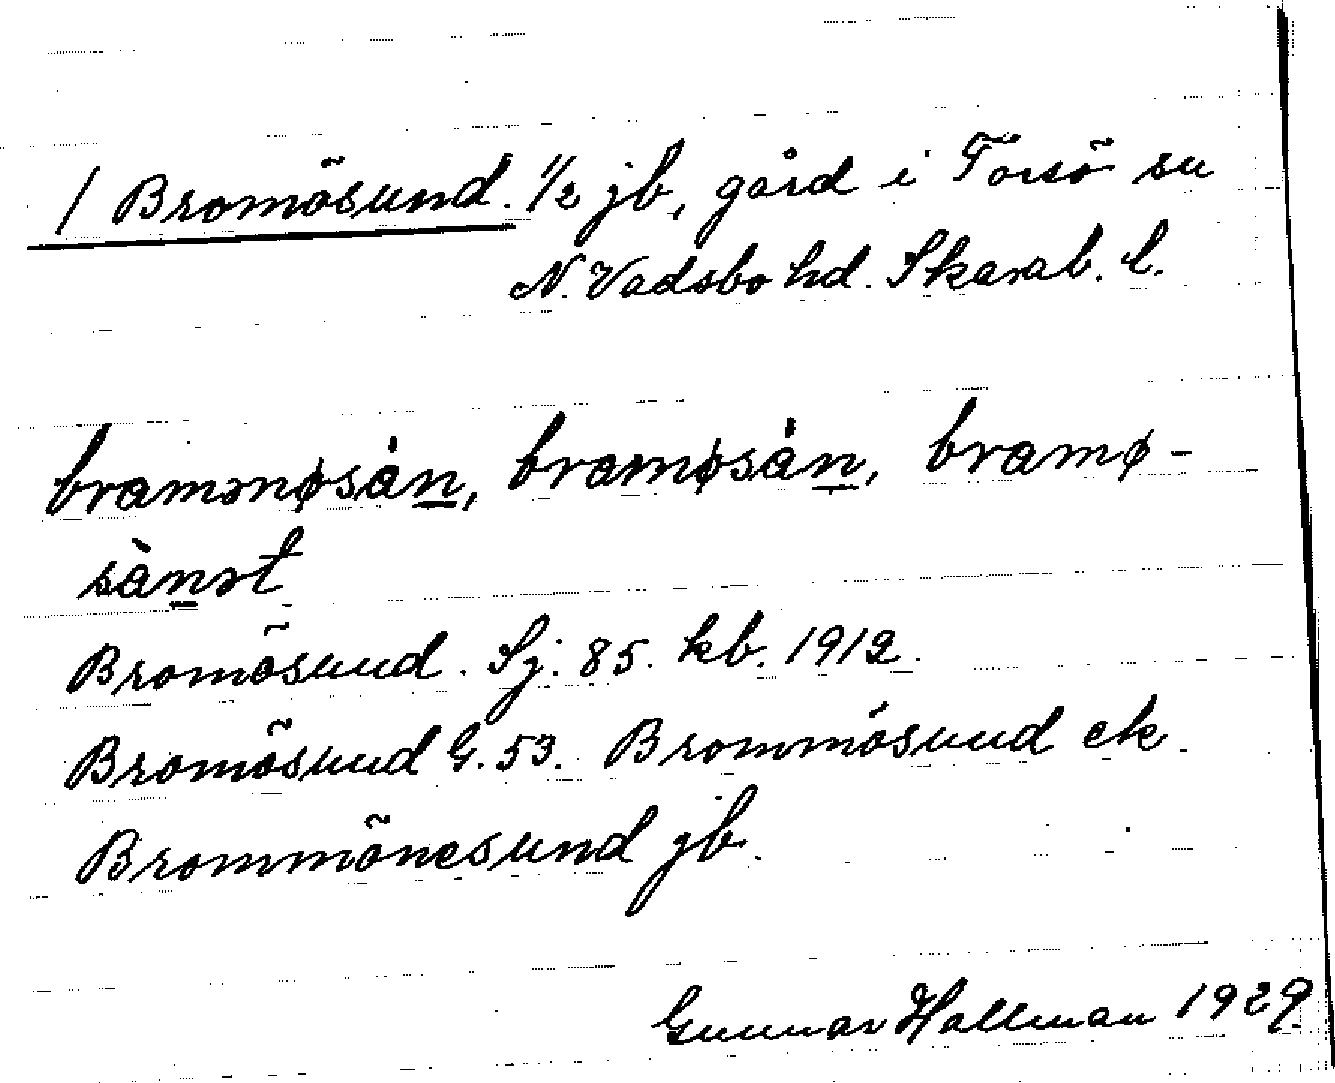 / Bromösund. 1/2 jb, gård i Torsö sn
N. Vadsbo hd. Skarab. l.
bramənøsán̲, bramøsán̲, bramø-
sàn̲ət
Bromösund. Sj. 85. kb. 1912.
Bromösund G. 53. Brommösund ek.
Brommönesund jb.
Gunnar Hallman 1929.